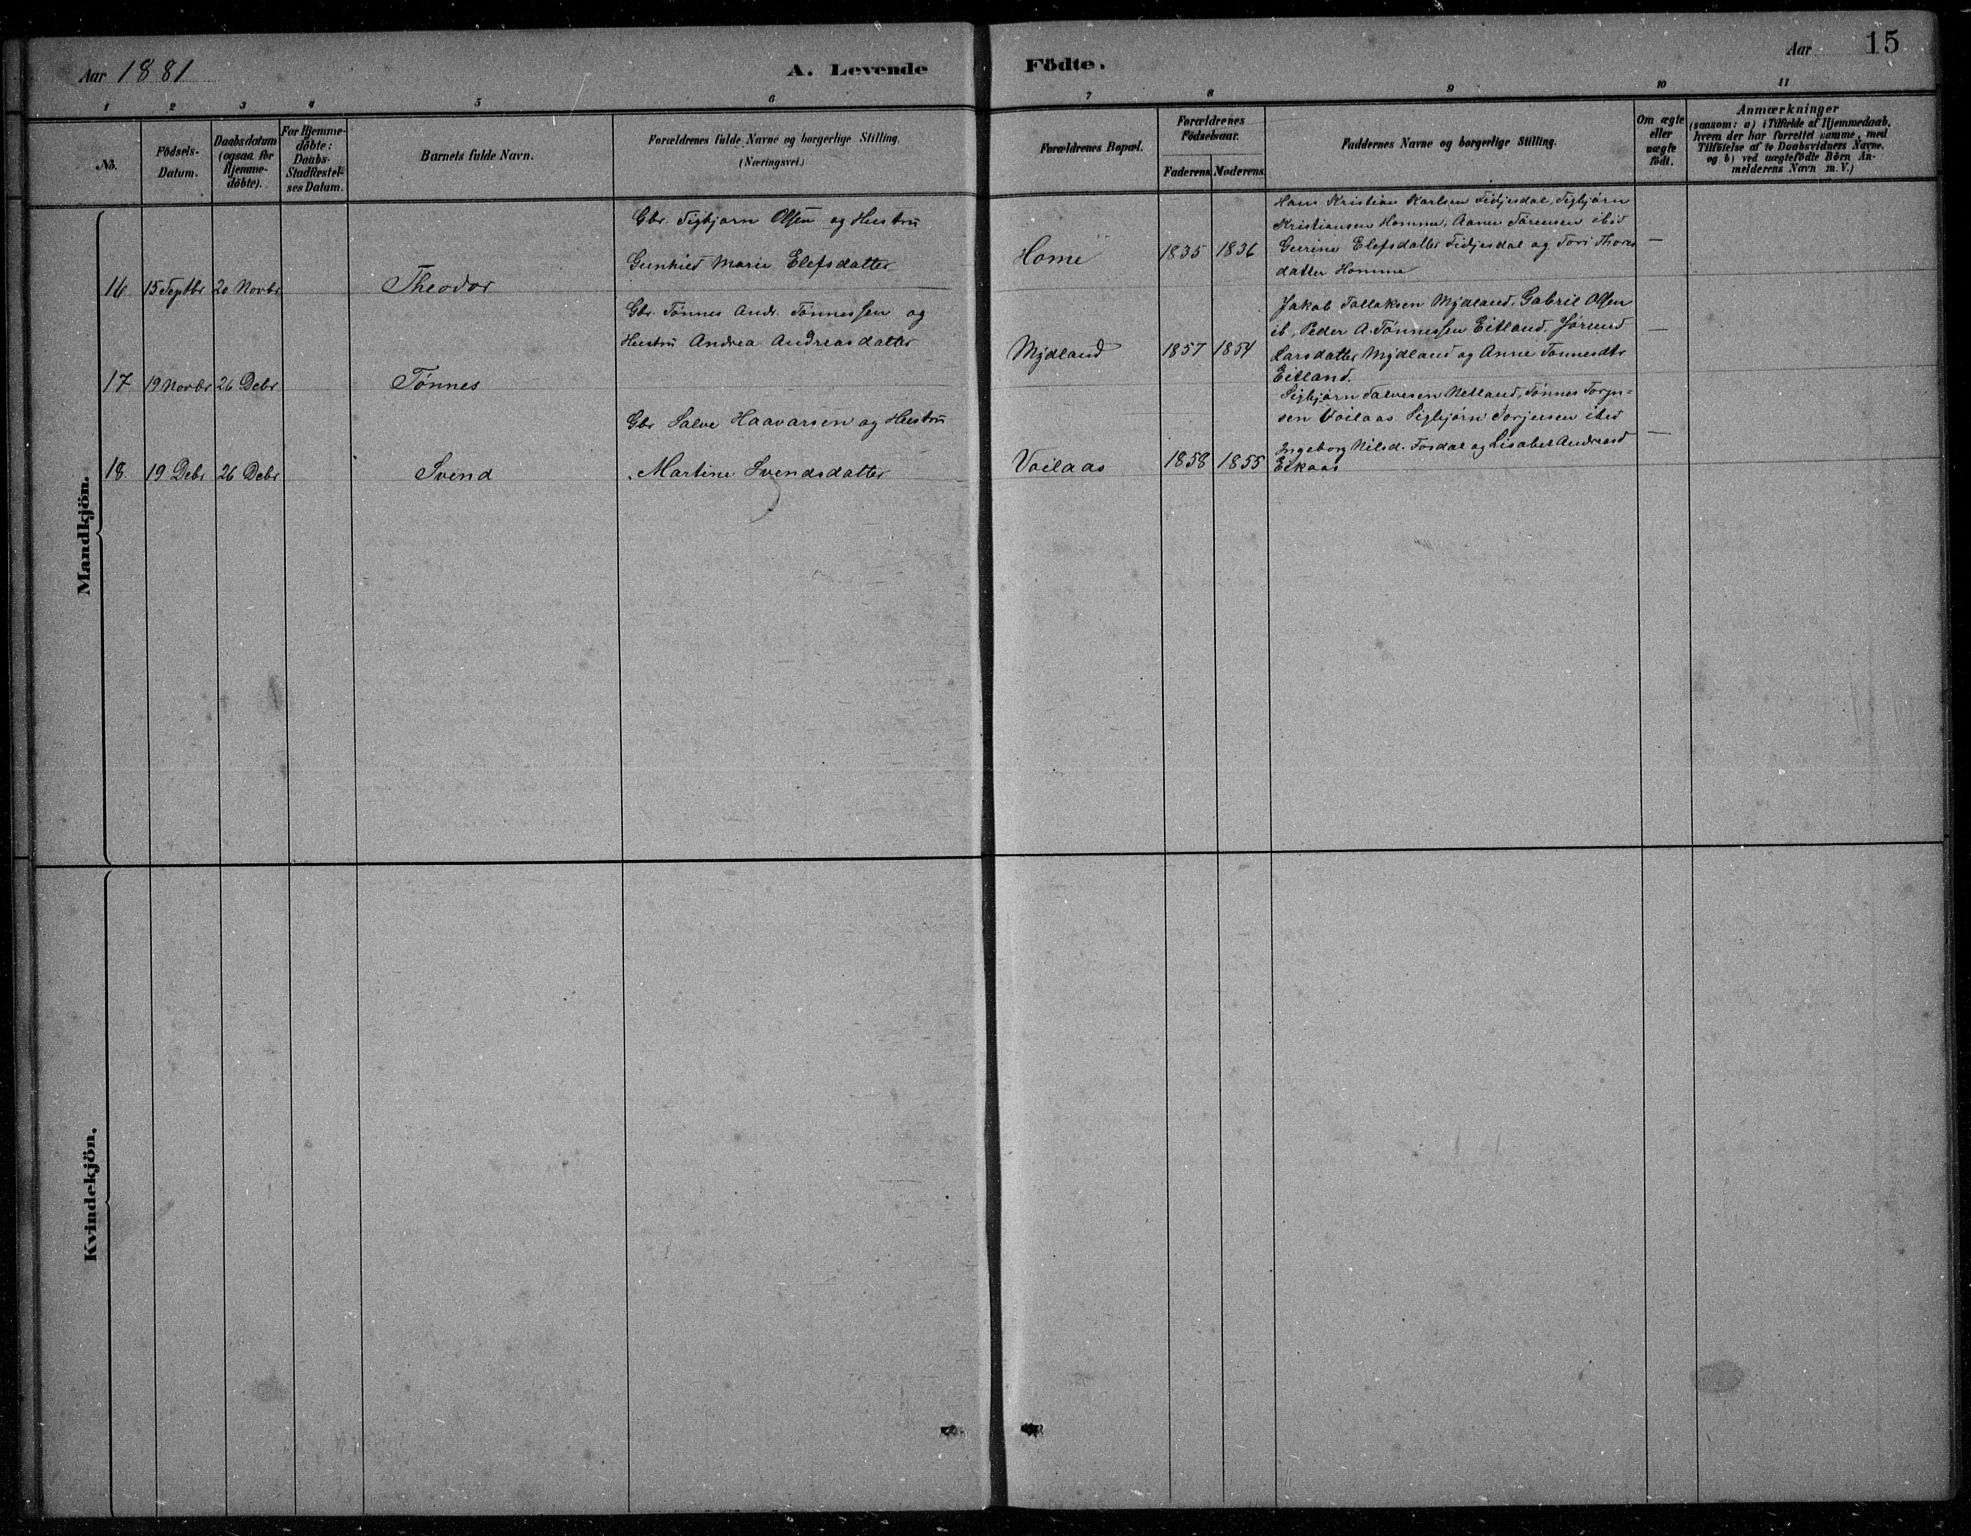 Aar 1881
A. Levende Födte.
Aar 15
1 2 3 4 5 6 7 8 9 10 11
No.
Födsels-
Datum.
Daabsdatum
(ogsaa for
Hjemme-
döbte).
For Hjemme-
döbte:
Daabs-
Stadfæstel-
ses Datum.
Barnets fulde Navn.
Forældrenes fulde Navne og borgerlige Stilling.
(Næringsvei.)
Forældrenes Bopæl.
Forældrenes
Födselsaar.
Faderens Moderens.
Faddernes Navne og borgerlige Stilling.
Om ægte
eller
uægte
födt.
Anmærkninger
(saasom: a) i Tilfælde af Hjemmedaab,
hvem der har forrettet samme, med
Tilföielse af to Daabsvidners Navne,
og b) ved uægtefödte Börn An-
melderens Navn m. V.)
Mandkjön.
16 15 Septbr 20 Novbr
Theodor
Gbr. Sigbjørn Olsen og Hustru
Gunhild Marie Elefsdatter
Home
1835 1836
Hans Kristian Karlsen Fidjesdal, Sigbjørn
Kristiansen Homme, Aanen Sørensen ibid
Gurine Elefsdatter Fidjesdal og Tori Thores
datter Homme
—
17 19 Novbr 26 Debr
Tønnes
Gbr. Tønnes Andr. Tønnessen og
Hustru Andrea Andreasdatter
Mydland
1857 1854
Jakob Tollaksen Mydland, Gabriel Olsen
ib, Peder A. Tønnessen Eitland, Jørund
Larsdatter Mydland og Anne Tønnesdtr
Eitland.
—
18. 19 Debr 26 Debr
Svend
Gbr Salve Haavarsen og Hustru
Martine Svendsdatter
Voilaas
1858 1855
Sigbjørn Salvesen Netland, Tønnes Torju-
sen Voilaas Sigbjørn Torjusen ibid
Ingeborg Nilsd. Fosdal og Lisabet Andreasd
Eikaas
—
Kvindekjön.